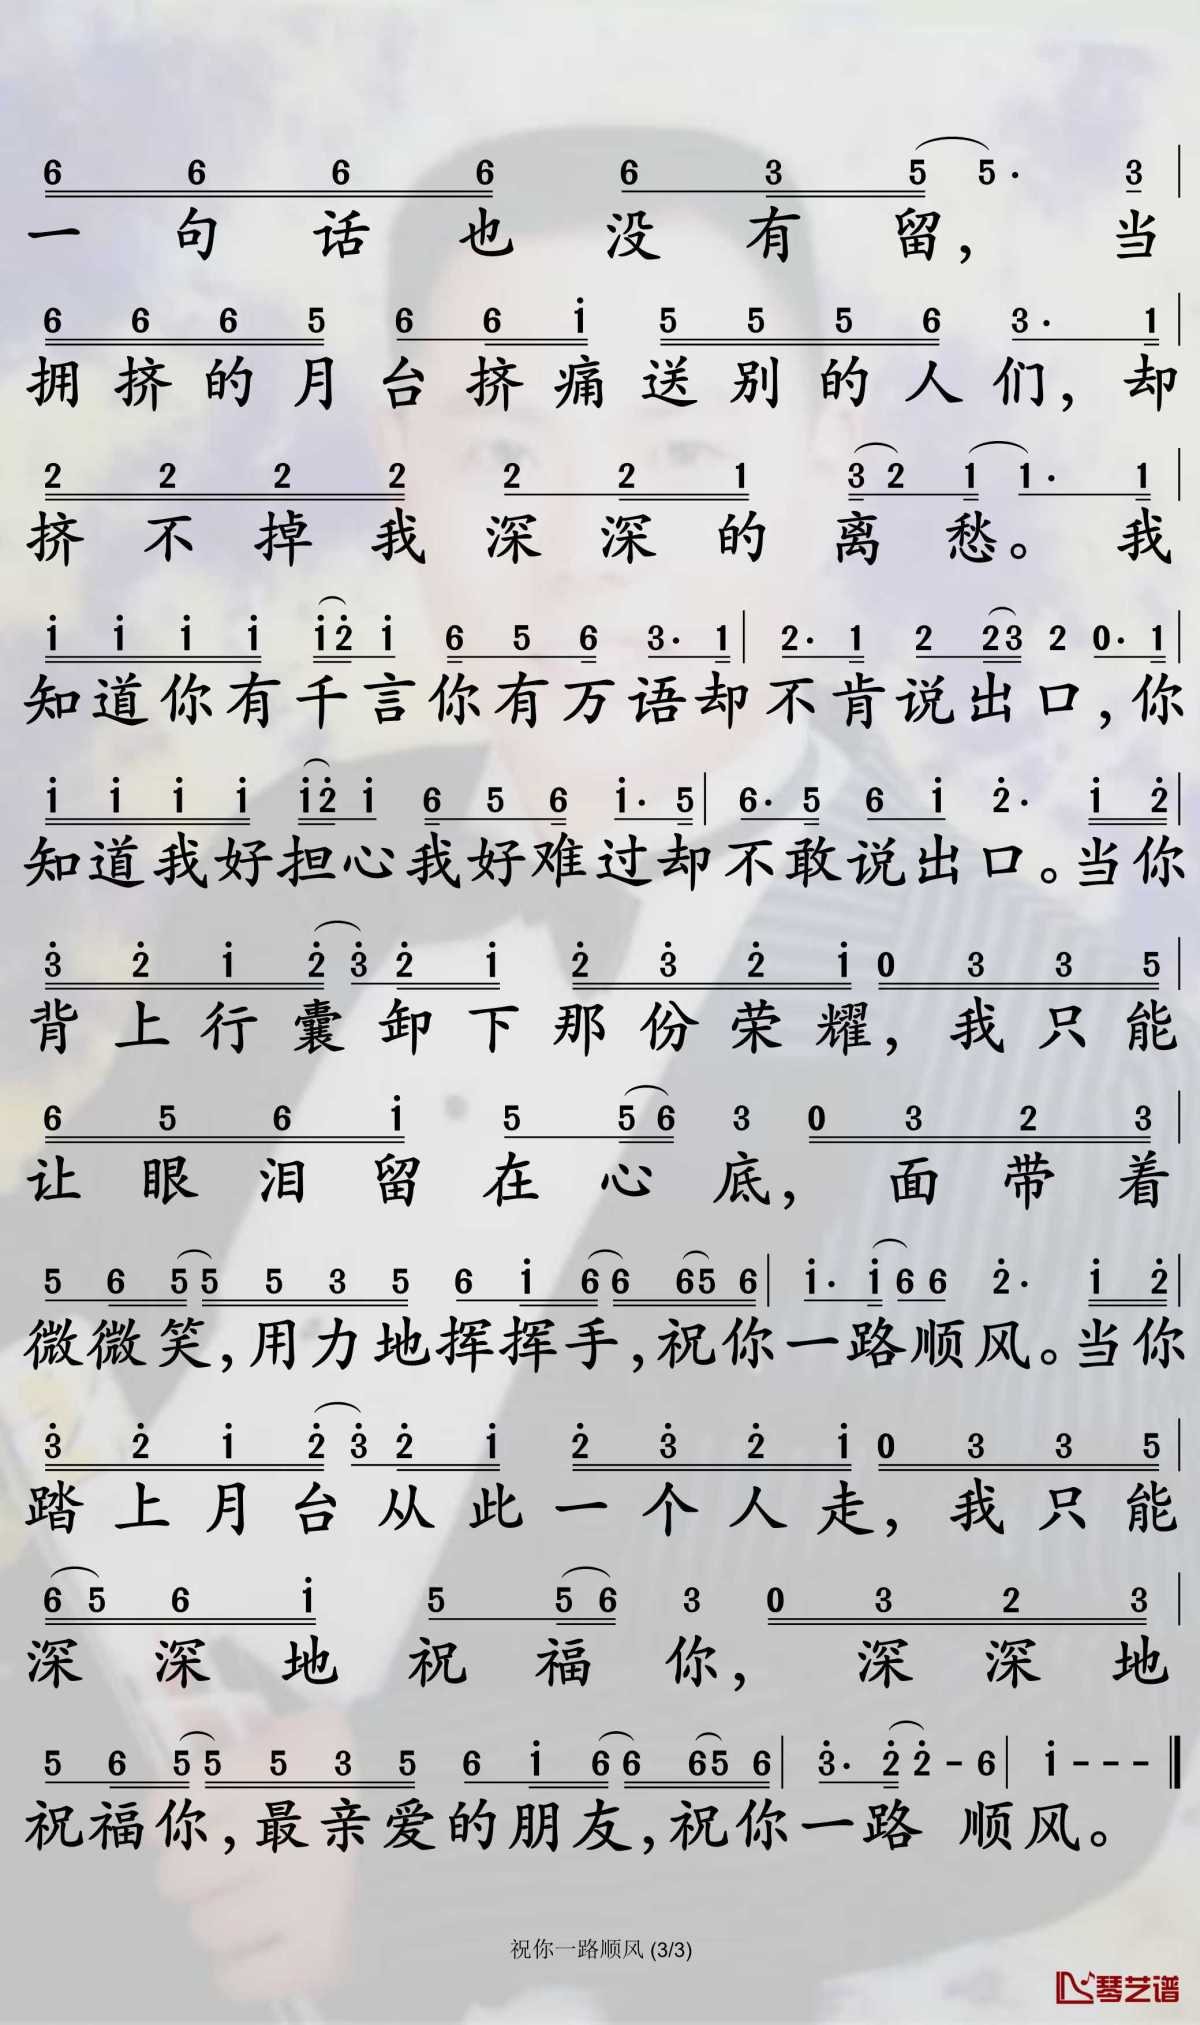 6 6 6 6 6 3 5 5· 3
一句话也没有留，当
6 6 6 5 6 6 i 5 5 5 6 3· 1
拥挤的月台挤痛送别的人们，却
2 2 2 2 2 2 1 3 2 1 1· 1
挤不掉我深深的离愁。我
i i i i i 2̇ i 6 5 6 3· 1 2· 1 2 2 3 2 0· 1
知道你有千言你有万语却不肯说出口，你
i i i i i 2̇ i 6 5 6 i· 5 6· 5 6 i 2̇· i 2̇
知道我好担心我好难过却不敢说出口。当你
3̇ 2̇ i 2̇ 3̇ 2̇ i 2̇ 3̇ 2̇ i 0 3 3 5
背上行囊卸下那份荣耀，我只能
6 5 6 i 5 5 6 3 0 3 2 3
让眼泪留在心底，面带着
5 6 5 5 5 3 5 6 i 6 6 6 5 6 i· i 6 6 2̇· i 2̇
微微笑，用力地挥挥手，祝你一路顺风。当你
3̇ 2̇ i 2̇ 3̇ 2̇ i 2̇ 3̇ 2̇ i 0 3 3 5
踏上月台从此一个人走，我只能
6 5 6 i 5 5 6 3 0 3 2 3
深深地祝福你，深深地
5 6 5 5 5 3 5 6 i 6 6 6 5 6 3̇· 2̇ 2̇ - 6 i - - -
祝福你，最亲爱的朋友，祝你一路 顺风。
祝你一路顺风 (3/3)
琴艺谱